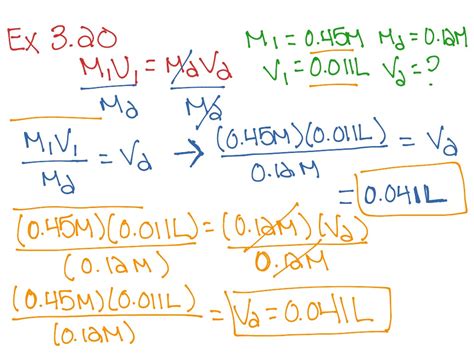 Ex 3.20
M1 = 0.45M M2 = 0.12M
V1 = 0.011L V2 = ?
M1V1 = M2V2
M2 M2
M1V1 / M2 = V2 → (0.45M)(0.011L) / 0.12M = V2
= 0.041L
(0.45M)(0.011L) = (0.12M)(V2)
(0.12M) 0.12M
(0.45M)(0.011L) / (0.12M) = V2 = 0.041L